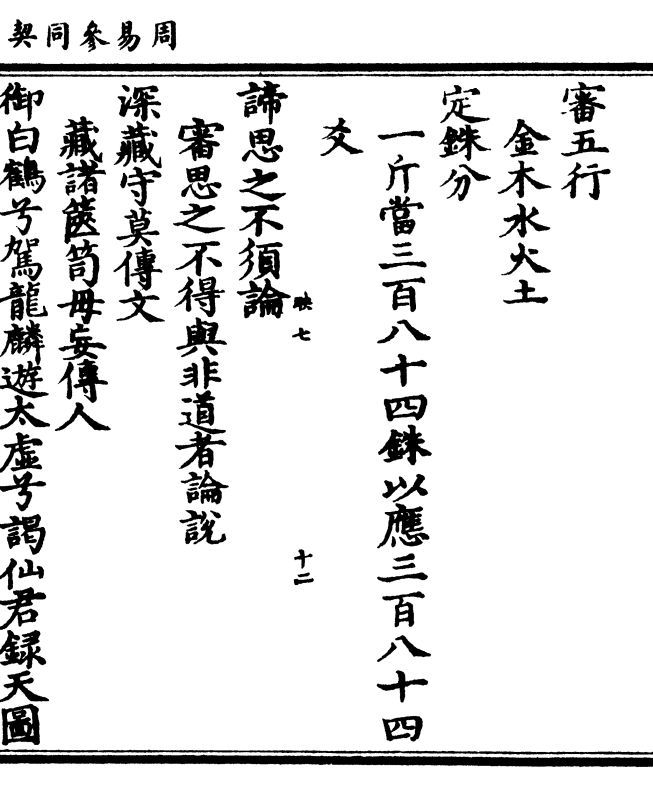 周易參同契
審五行
金木水火土
定銖分
一斤當三百八十四銖以應三百八十四
爻
映七
十二
諦思之不須論
審思之不得與非道者論說
深藏守莫傳文
藏諸篋笥毋妄傳人
御白鶴兮駕龍麟遊太虛兮謁仙君録天圖